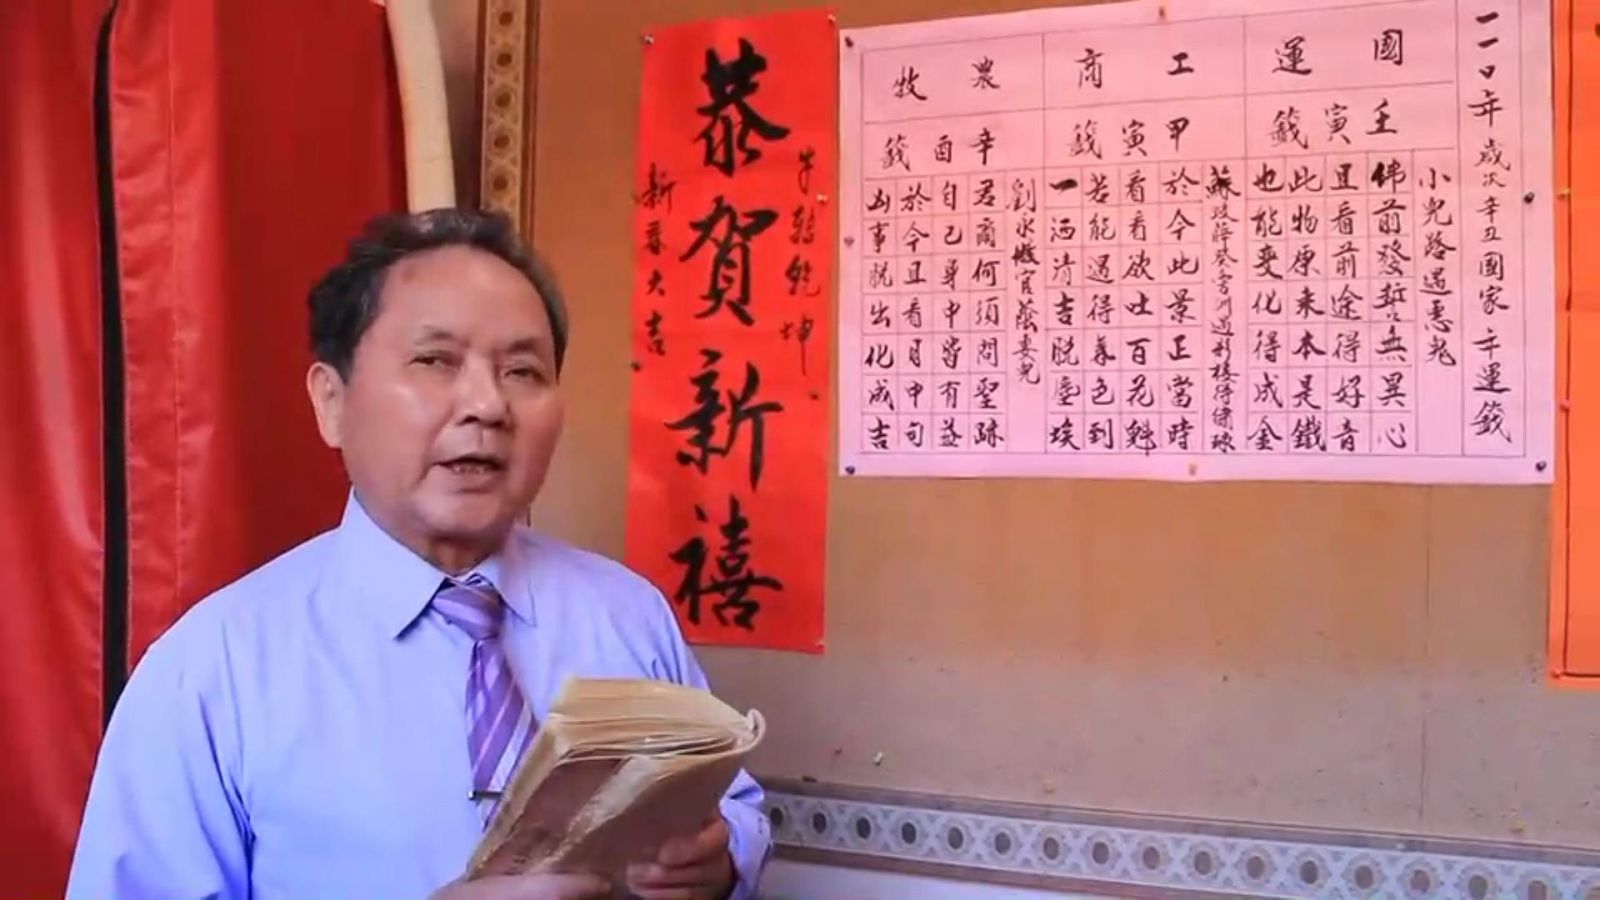 一一0年歲次辛丑國家年運籤
國運
壬寅籤
小兒路遇惡鬼
佛前發誓無異心
且看前途得好音
此物原來本是鐵
也能變化得成金
工商
甲寅籤
於今此景正當時
看看欲吐百花魁
若能遇得春色到
一洒清吉脫塵埃
農牧
辛酉籤
君爾何須問聖跡
自己身中皆有益
於今且看月中旬
凶事脫出化成吉
牛轉乾坤
恭賀新禧
新春大吉